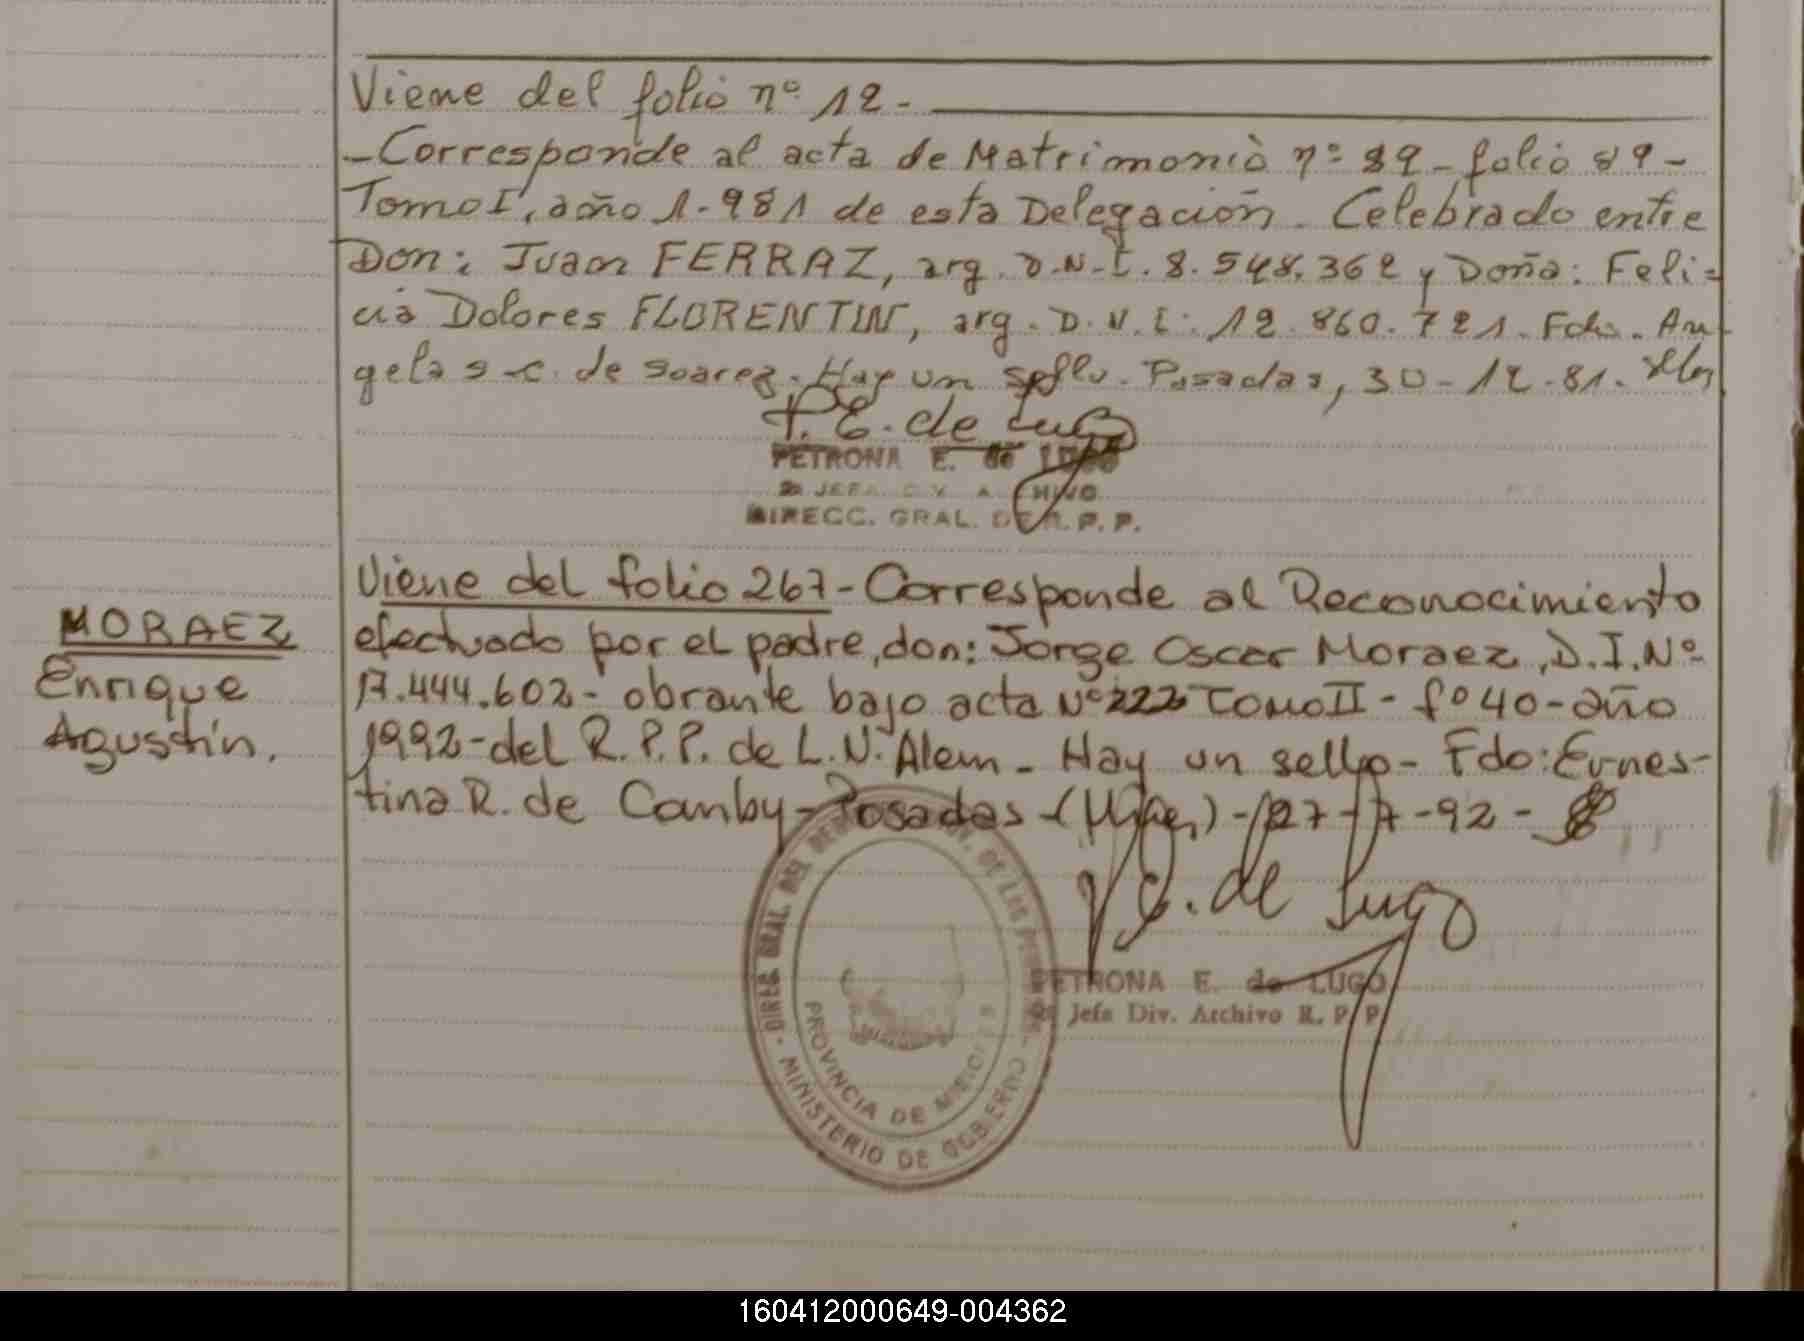 Viene del folio nº 12.
-Corresponde al acta de Matrimonio nº 89 - folio 89 -
Tomo I, año 1.981 de esta Delegación. Celebrado entre
Don: Juan FERRAZ, arg. D.N.I. 8.548.362 y Doña: Feli=
cia Dolores FLORENTIN, arg. D.N.I. 12.860.721. Fdo. An-
gela S.C. de Soarez. Hay un sello. Posadas, 30-12-81.
P.E. de Lugo
PETRONA E. de LUGO
JEFA DIV. ARCHIVO
DIRECC. GRAL. DE R. P. P.
MORAEZ
Enrique
Agustín.
Viene del folio 267 - Corresponde al Reconocimiento
efectuado por el padre, don: Jorge Oscar Moraez, D.I. Nº
17.444.602 - obrante bajo acta Nº 222 Tomo II - fº 40 - año
1992 - del R.P.P. de L.N. Alem - Hay un sello - Fdo: Ernes-
tina R. de Canby - Posadas - (Mnes) - 27-7-92 -
P.E. de Lugo
PETRONA E. de LUGO
Jefa Div. Archivo R. P. P.
DIREC. GRAL. DEL DE LOS
MINISTERIO DE GOBIERNO
PROVINCIA DE MISIONES
160412000649-004362